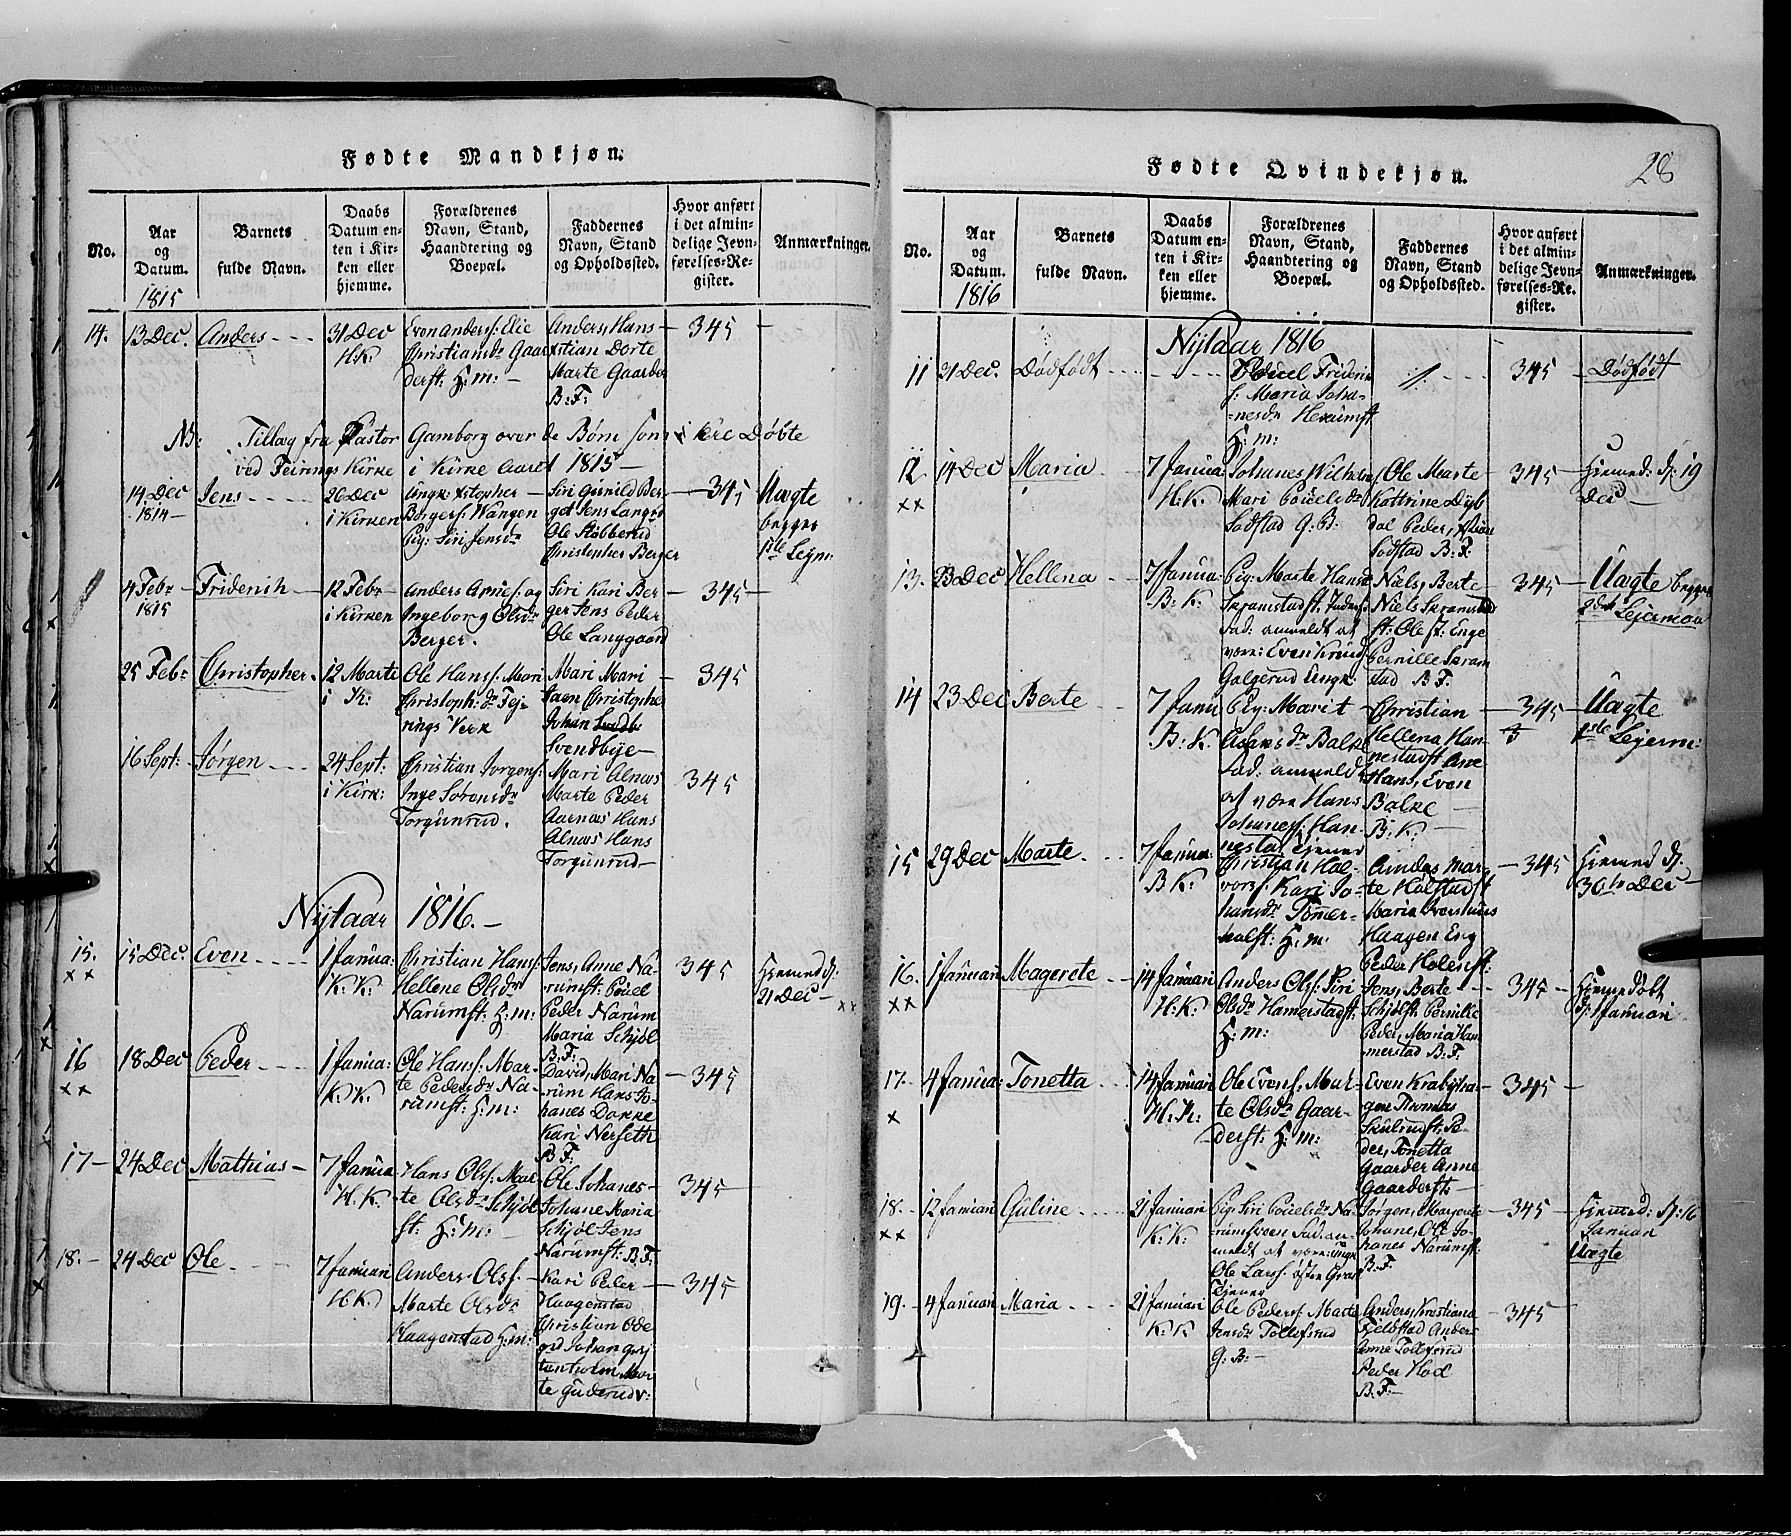 Fødte Mandkjøn.
No.
Aar
og
Datum.
1815
Barnets
fulde Navn.
Daabs
Datum en-
ten i Kir-
ken eller
hjemme.
Forældrenes
Navn, Stand,
Haandtering og
Boepæl.
Faddernes
Navn, Stand
og Opholdssted.
Hvor anført
i det almin-
delige Jevn-
førelses-Re-
gister.
Anmærkninger.
14.
13 Dec.
Anders
31 Dec
H.K.
Even Anders: Elie
Christiansdr Gaar
derst: H:m:
Anders, Hans
Xstian Dorte
Marte Gaarder
B:F:
345
NB: Tillæg fra Pastor Gamborg over de Børn som ere Døbte
ved Feirings Kirke i Kirke Aaret 1815
14 Dec
1814
Jens
26 Dec
i Kirken
Ungk: Xstopher
Borgers: Wangen
Pig: Siri Jensdr
Siri Gunild Ber-
get Jens Langrd
Ole Stobberud
Christopher Berger
345
Uægte
begges
1ste Lejm:
4 Febr
1815
Friderich
12 Febr
i Kirken
Anders Arnes: og
Ingeborg Olsdr
Berger.
Siri Kari Ber
ger Jens Peder
Ole Langgaard
345
25 Febr
Christopher
12 Marte
i K:
Ole Hans: Mari
Christoph: dr Fej-
rings Verk
Mari Mari
Christopher
Johan
Svendbye
345
16 Sept:
Jørgen
24 Sept:
i Kirk:
Christian Jorgens:
Inge Sørensdr
Torgunrud.
Mari Alnæs
Marte Peder
Aarnæs Hans
Alnæs Hans
Torgunrud
345
Nytaar 1816.
15.
xx
15 Dec.
Even
1 Janua:
K.K:
Christian Hans:
Hellene Olsdr
Narumst: H:m:
Jens, Anne Na-
rumst: Pouel
Peder Narum
Maria Schjøl
B:F:
345
Hiemmed:
21 Dec
xx
16
xx
18 Dec
Peder
1 Janua:
K.K.
Ole Hans: Mar-
te Pedersdr Na-
rumst: H:m:
David, Mari Na
rum Hans Jo-
hanes Dokke
Kari Nerseth
B:F:
345
17
24 Dec
Mathias
7 Janua
H.K.
Hans Ols: Mar-
te Olsdr Schjøl
st: H:m:
Ole Johanes
Johane Maria
Schjøl Jens
Narumst: B.F:
345
18.
24 Dec
Ole
7 Januari
H.K.
Anders Ols:
Marte Olsdr
Haagenstad H:m:
Kari Peder
Haagenstad
Christian Ode
grd Johan

te Guderudv:
345
Fødte Qvindekjøn.
28
No.
Aar
og
Datum.
1816
Barnets
fulde Navn.
Daabs
Datum en-
ten i Kir-
ken eller
hjemme.
Forældrenes
Navn, Stand,
Haandtering og
Boepæl.
Faddernes
Navn, Stand
og Opholdssted.
Hvor anført
i det almin-
delige Jevn-
førelses-Re-
gister.
Anmærkninger.
Nytaar 1816
11
31 Dec.
Dødfødt
Pouel Frider
s: Maria Joha-
nesdr Hexumst
H:m:
345
Dødfødt
12
xx
14 Dec
Maria
7 Janua:
H.K.
Johanes Wilhelm
Mari Pouelsdr
Sodstad G:B:
Ole Marte
Kattrine Dyb
dal Peder, Xstian
Sodstad B:F:
345
Hiemmed: d: 19
Dec
13.
23 Dec
Hellena
7 Janua:
B.K.
Pig: Marte Hansd
Skramstadst:
Fad: anmeldt at
være: Even Knuds
Galgerud Ungk:
Niels, Berte
Niels Skramstad
st: Ole st: Enge
Pernille Skram
stad B.F.
345
Uægte begges
2det Lejermaal
14
23 Dec
Berte
7 Janu
B.K.
Pig: Marit
Asaksdr Balke
Fad: anmeldt
at være Hans
Johanes: Han-
nestad tjener
Christian
Hellena Han-
nestadst Ane
Hans, Even
Balke
B.K.
345
Uægte
1ste Lejerm:
15
29 Dec
Marte
7 Janua:
B K:
Christian Hal-
vors: Kari Jo-
hansdr Tømer-
holst: H:m:
Andas Mar
te Holstadst
Maria Ivershuus
Haagen Eng
Peder Holenst:
345
Hiemmed d:
30te Dec
16.
xx
1 Januari
Magerete
14 Januari
H:K:
Anders Ols: Siri
Olsdr Hamerstadst:
H:m:
Jens, Berte
Schjølst: Pernille
Peder, Maria Ham
merstad B.F.
345
Hiemmedøbt
d: 1 Januari
17.
x
4 Janua:
Tonetta
14 Januari
H:K:
Ole Evens: Mar-
te Olsdr Gaar-
derst: H:m:
Even Krabyha-
gen Thomas
Skulrudst: Pe-
der, Tonetta
Gaarder Anne
Gaarderst:
345
18.
xx
12 Januari
Guline
21 Januari
K.K:
Pig: Siri Pouelsdr Na
rumsveen Fad: an-
meldt at være: Ungk
Ole Lars: østen Gran
Tjener
Jørgen, Margrete
Johane, Ole Jo-
hanes Narumst:
B.F
345
Hiemmed: d: 16
Januari
Uægte
19.
4 Januari
Maria
21 Januari
K.K
Ole Peders: Marte
Jensdr Tollefsrud
G:B:
Anders, Kristiana
Fjeldstad Anders
Anne Tollefsrud
Peder Hoel
B.F:
345